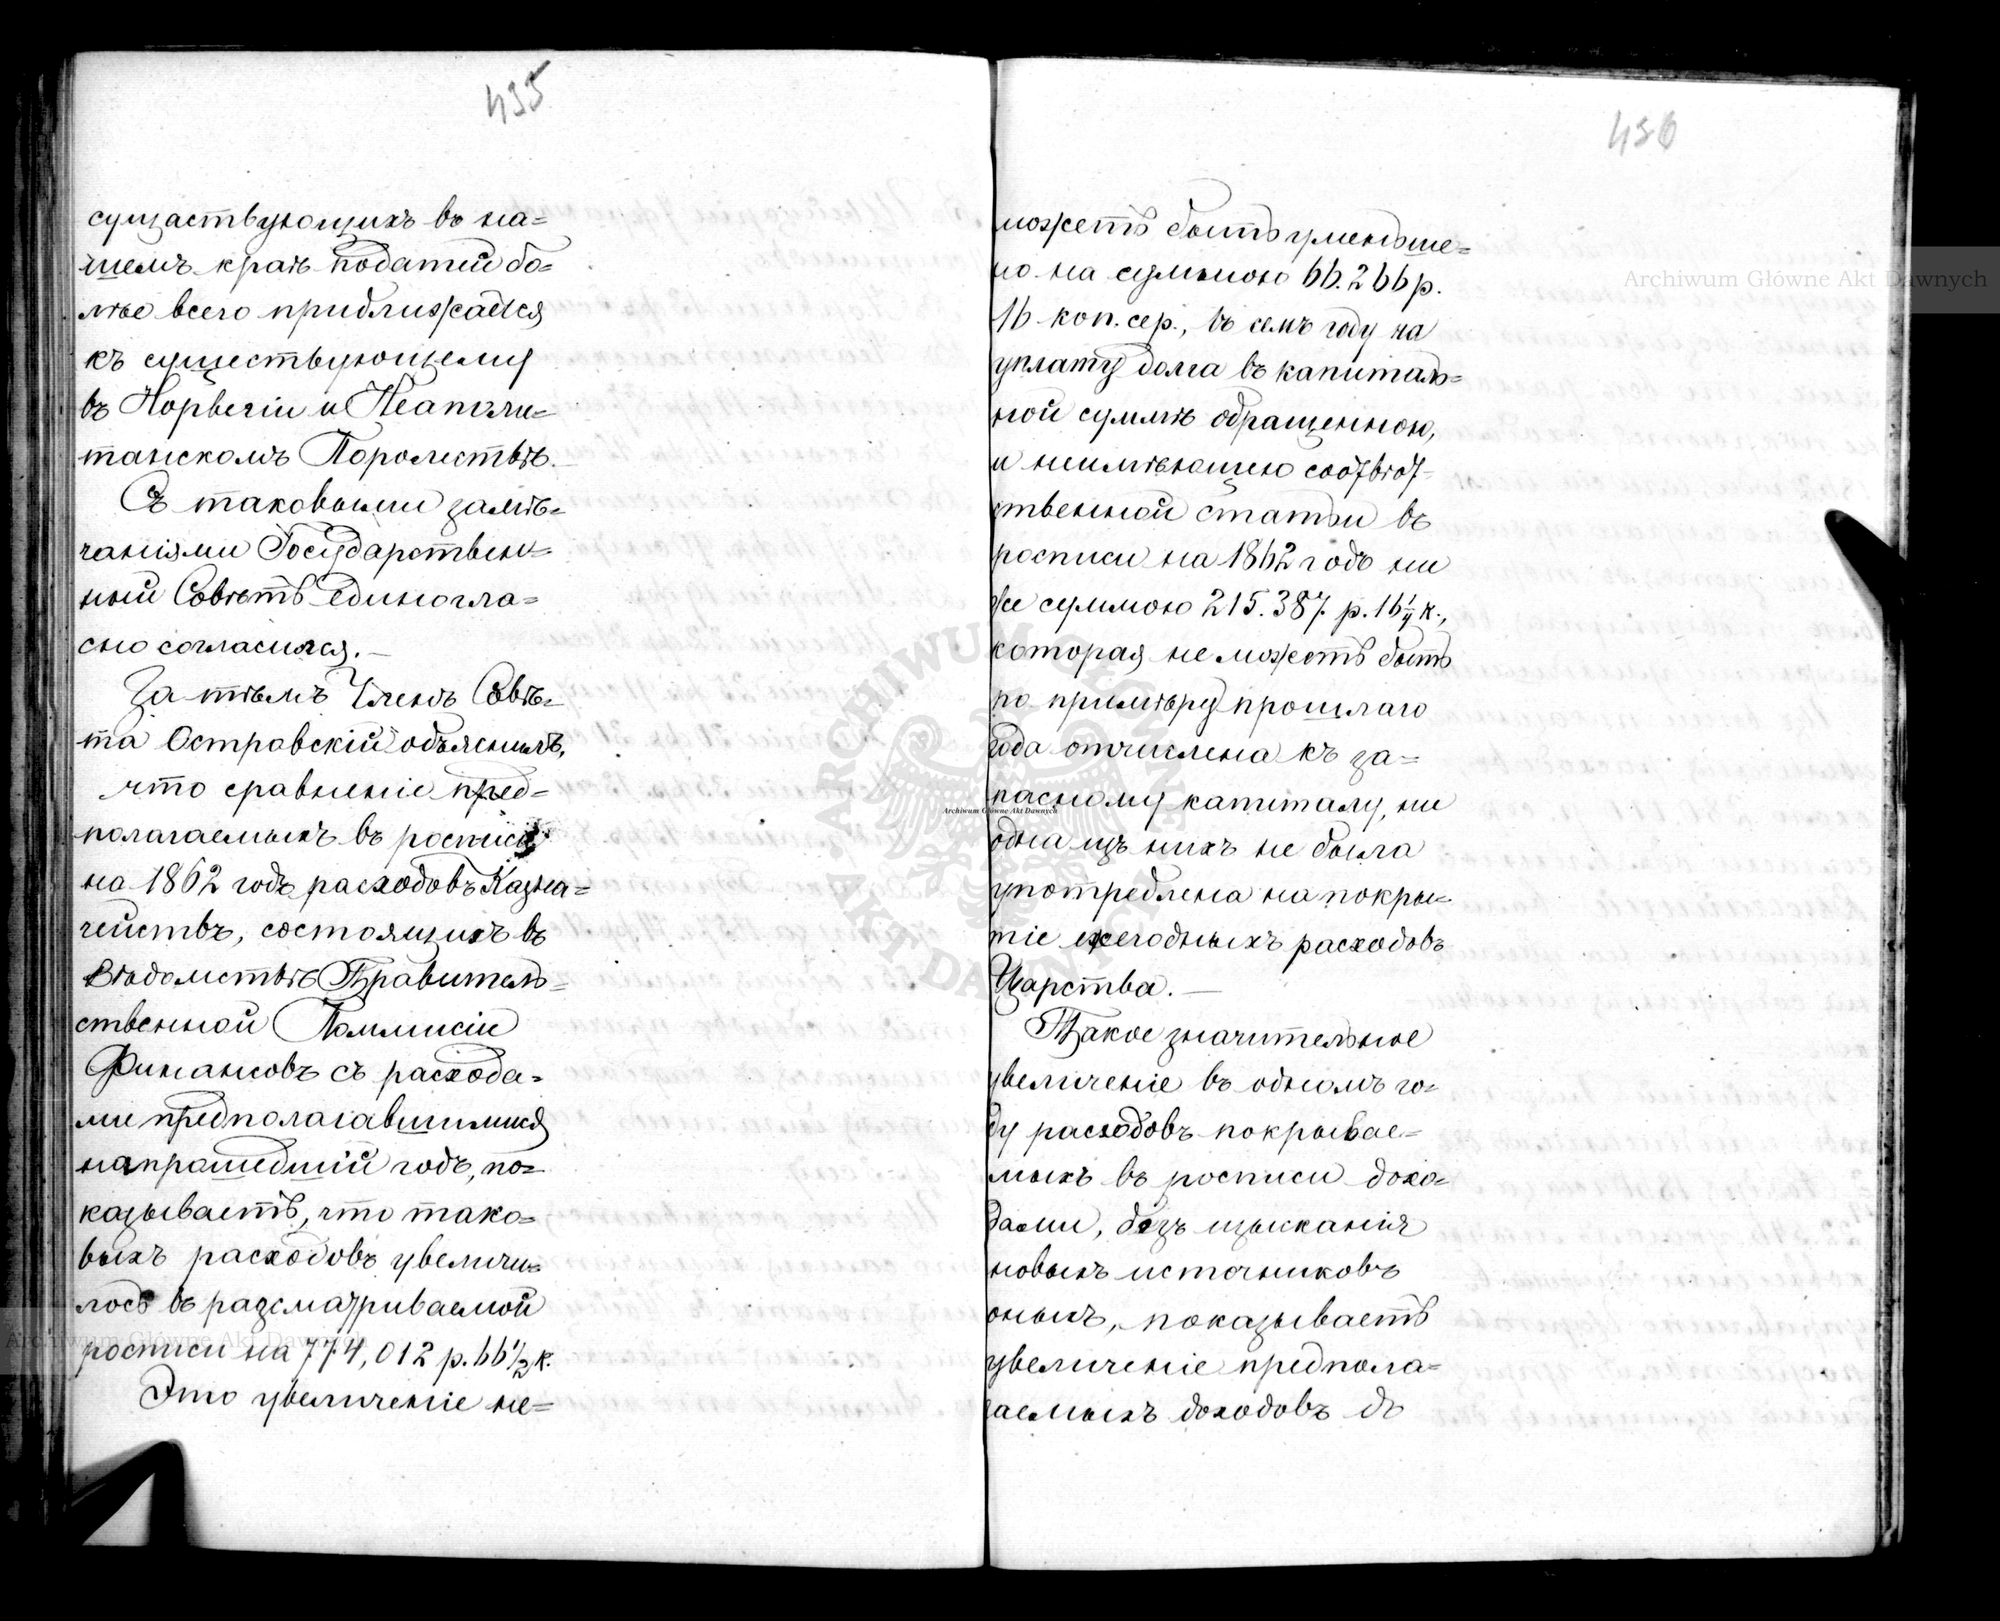 435
существующихъ въ на=
шемъ краѣ податей бо=
лѣе всего придлижается
къ существующему
въ Норвегіи и Неаполи=
танскомъ Королевствѣ.
Съ таковыми замѣ=
чаніями Государствен=
ный Совѣтъ единогла=
сно согласился.—
За тѣмъ Членъ Совѣ=
та Островскій объяснилъ,
что сравненіе пред=
полагаемыхъ въ росписи
на 1862 годъ расходовъ Казна=
чействъ, состоящихъ въ
вѣдомствѣ Правитель=
ственной Коммисіи
Финансовъ съ расхода=
ми предполагавшимися
на прошедшій годъ, по=
казываетъ, что тако=
выхъ расходовъ увеличи=
лось въ разсматриваемой
росписи на 774,012 р. 66½ к.
Это увеличеніе не=
436
можетъ быть уменьше=
но на суммою 66.266 р.
16 коп. сер., въ семъ году на
уплату долга въ капиталь=
ной суммѣ обращенною,
и неимѣющею соотвѣт=
ственной статьи въ
росписи на 1862 годъ ни
же суммою 215.387 р. 16¼ к.,
которая не можетъ быть
по примѣру прошлаго
года отчислена къ за=
пасному капиталу, ни
одна изъ нихъ не была
употреблена на покры=
тіе ежегодныхъ расходовъ
Царства.—
Такое значительное
увеличеніе въ одномъ го=
ду расходовъ покрывае=
мыхъ въ росписи дохо=
дами, безъ изысканія
новыхъ источниковъ
оныхъ, показываетъ
увеличеніе предпола=
гаемыхъ доходовъ до
Archiwum Główne Akt Dawnych
Archiwum Główne Akt Dawnych
Archiwum Główne Akt Dawnych
ARCHIWUM GŁÓWNE AKT DAWNYCH